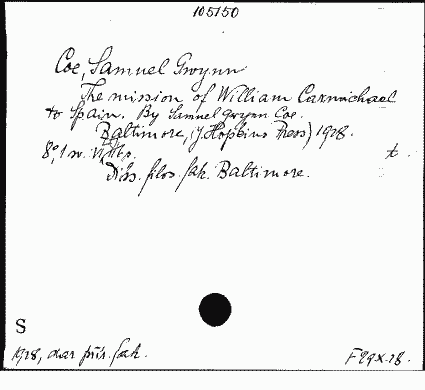 105150
Coe, Samuel Gwynn
The mission of William Carmichael
to Spain. By Samuel Gwynn Coe.
Baltimore, (J. Hopkins Press) 1928.
8°, 1 sv. t.
Diss. filos. fak. Baltimore.
S
1928, dar přír. fak. F29X-28.